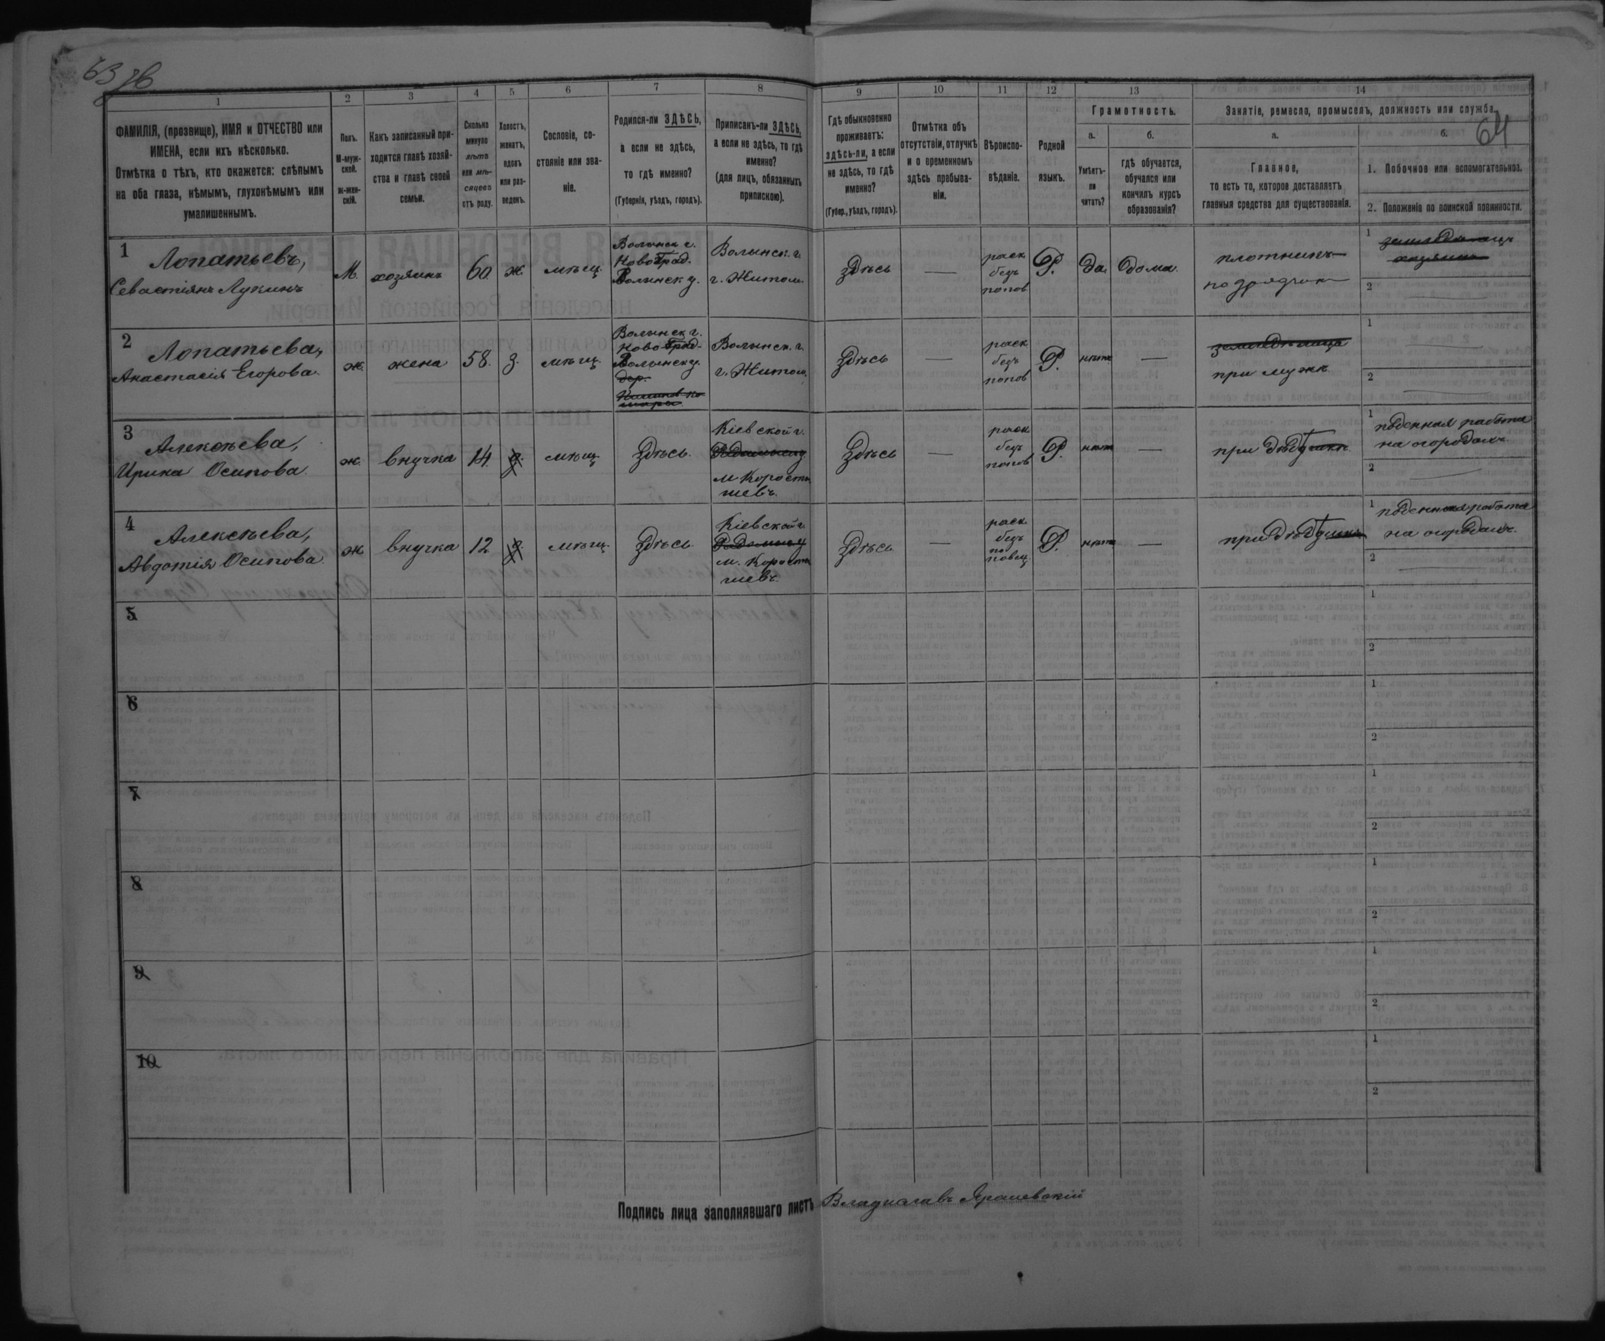 63 об
64
1 2 3 4 5 6 7 8 9 10 11 12 13 14
ФАМИЛІЯ, (прозвище), ИМЯ и ОТЧЕСТВО или ИМЕНА, если ихъ нѣсколько.
Отмѣтка о тѣхъ, кто окажется: слѣпымъ на оба глаза, нѣмымъ, глухонѣмымъ или умалишеннымъ.
Полъ.
М-мужской.
Ж-женскій.
Какъ записанный приходится главѣ хозяйства и главѣ своей семьи.
Сколько минуло лѣтъ или мѣсяцевъ отъ роду.
Холостъ, женатъ, вдовъ или разведенъ.
Сословіе, состояніе или званіе.
Родился-ли ЗДѢСЬ,
а если не здѣсь,
то гдѣ именно?
(Губернія, уѣздъ, городъ).
Приписанъ-ли ЗДѢСЬ,
а если не здѣсь, то гдѣ именно?
(для лицъ, обязанныхъ припискою).
Гдѣ обыкновенно проживаетъ:
здѣсь-ли, а если не здѣсь, то гдѣ именно?
(Губер., уѣздъ, городъ).
Отмѣтка объ отсутствіи, отлучкѣ и о временномъ здѣсь пребываніи.
Вѣроисповѣданіе.
Родной языкъ.
Грамотность.
а.
Умѣетъ-ли читать?
б.
гдѣ обучается, обучался или кончилъ курсъ образованія?
Занятіе, ремесло, промыселъ, должность или служба.
а.
Главное,
то есть то, которое доставляетъ главныя средства для существованія.
б.
1. Побочное или вспомогательное.
2. Положеніе по воинской повинности.
1 Лопатьевъ,
Севастіянъ Лукинъ
М. хозяинъ 60 ж. мѣщ.
Волынск г.
Новоград.
Волынск у.
Волынск. г.
г. Житом.
здѣсь — раск безъ поповъ Р. Да Дома
плотникъ
подрядчик
1
2
2 Лопатьева,
Анастасія Егорова.
ж. жена 58. з. мѣщ.
Волынск г.
Новоград-
Волынск у.
Волынск. г.
г. Житом.
Здѣсь — раск безъ попов Р. нѣтъ —
земледѣлица
при мужѣ
1
2
3 Алексѣева,
Ирина Осипова
ж. внучка 14 д. мѣщ. Здѣсь.
Кіевской г.
Радомыс у
м Корости
шевъ.
Здѣсь — раск безъ попов Р. нѣтъ —
при Дѣдушкѣ
1 поденная работа
на огородахъ.
2
4 Алексѣева,
Авдотія Осипова
ж внучка 12 д. мѣщ. Здѣсь.
Кіевской г
Радомыс у
м. Корости
шевъ.
Здѣсь — раск. безъ по повщ Р. нѣтъ —
при Дѣдушкѣ
1 поденная работа
на огородахъ.
2
5
1
2
6
1
2
7
1
2
8
1
2
9
1
2
10
1
2
Подпись лица заполнявшаго листъ Владиславъ Ярошевскій